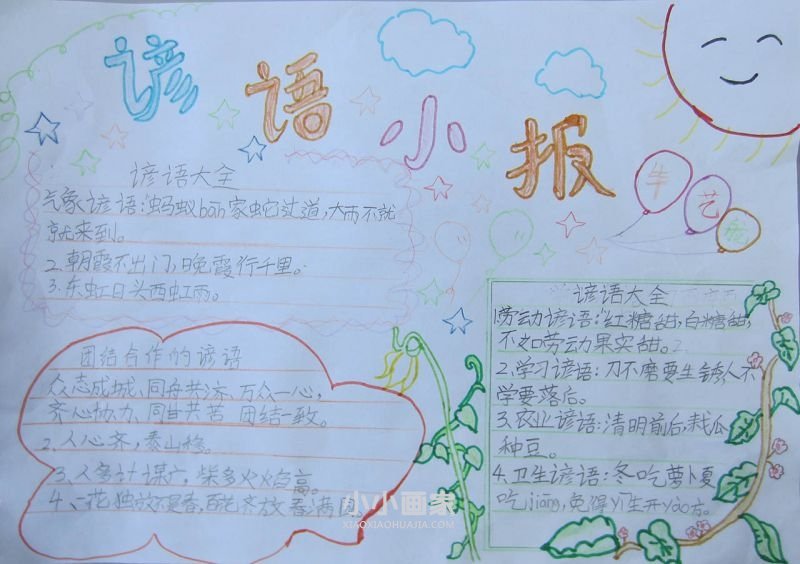 谚语小报
谚语大全
气象谚语:蚂蚁bān家蛇过道,大雨不就
就来到。
2.朝霞不出门,晚霞行千里。
3.东虹日头西虹雨。
团结合作的谚语
众志成城、同舟共济、万众一心,
齐心协力、同甘共苦 团结一致。
2.人心齐,泰山移。
3.人多计谋广,柴多火火焰高。
4.一花独放不是春,百花齐放春满园。
牛艺
谚语大全
1劳动谚语:红糖甜,白糖甜,
不如劳动果实甜。
2.学习谚语:刀不磨要生锈,人不
学要落后。
3.农业谚语:清明前后,栽瓜
种豆。
4.卫生谚语:冬吃萝卜夏
吃jiāng,免得yī生开yào方。
小小画家
XIAOXIAOHUAJIA.COM